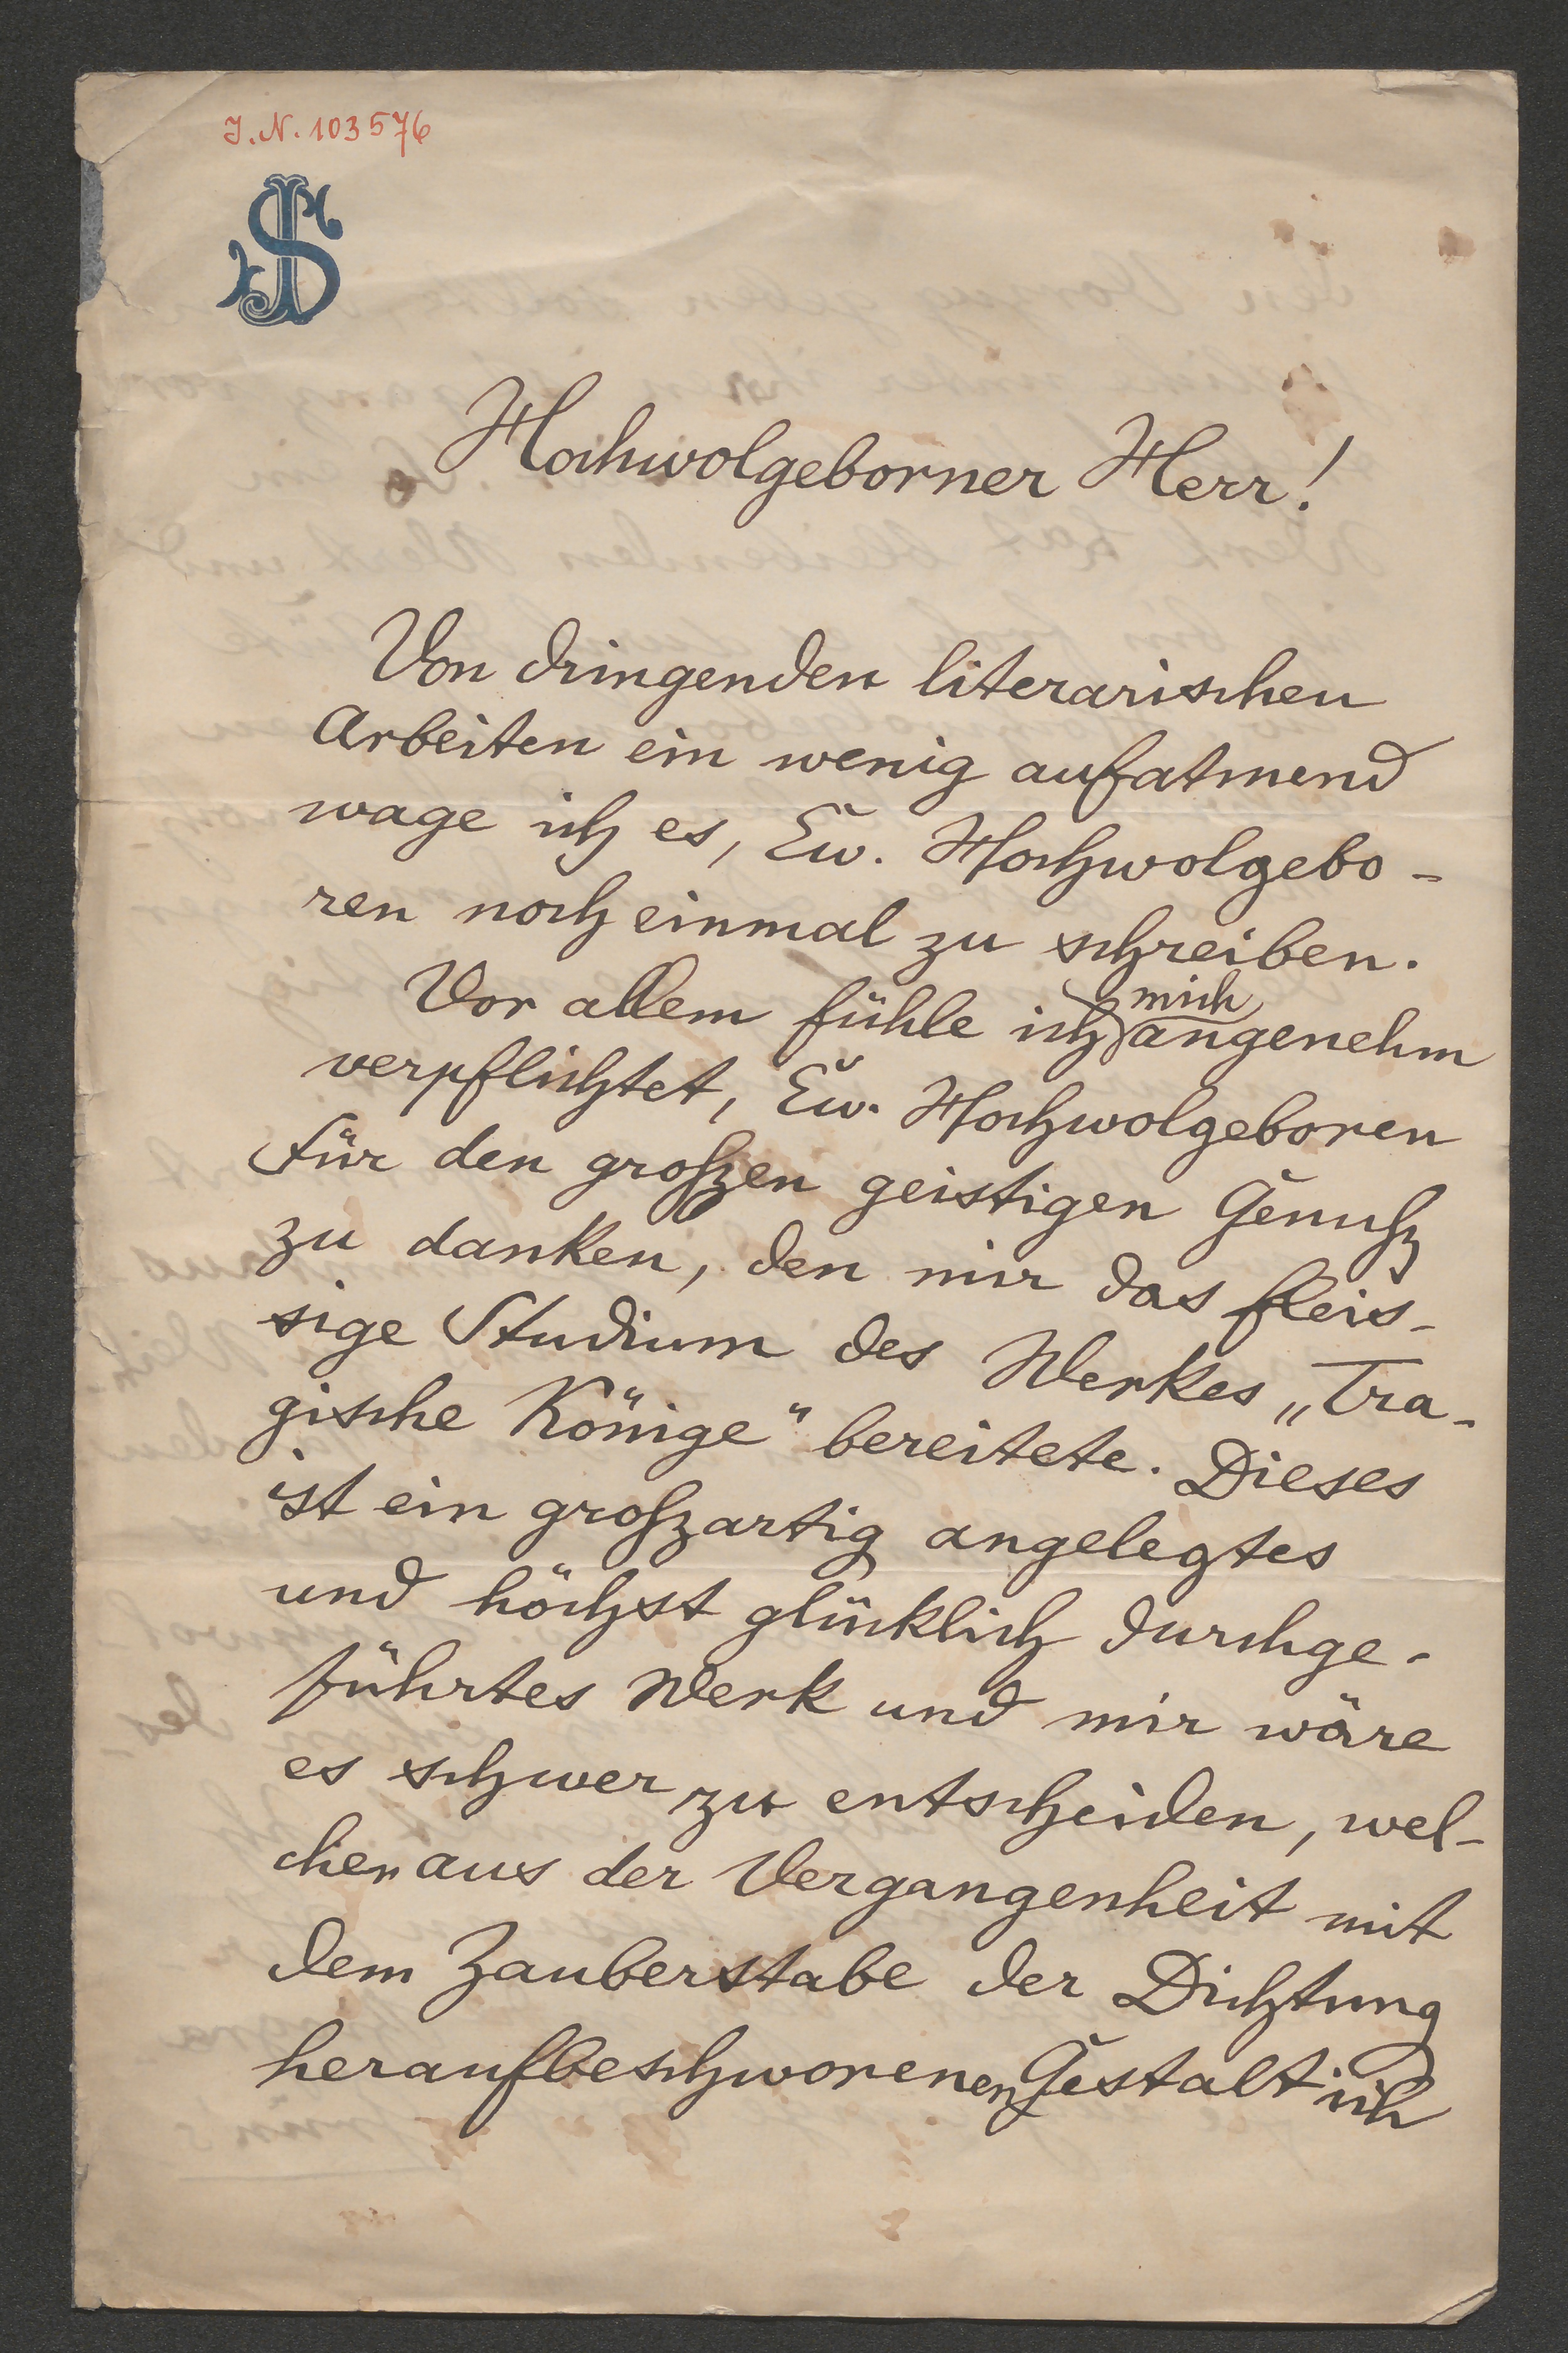 J. N. 103576
JS
Hochwolgeborner Herr!
Von dringenden literarischen
Arbeiten ein wenig aufatmend
wage ich es, Ew. Hochwolgebo-
ren noch einmal zu schreiben.
Vor allem fühle ich mich angenehm
verpflichtet, Ew. Hochwolgeboren
für den großen geistigen Genuß
zu danken, den mir das fleis-
sige Studium des Werkes „Tra-
gische Könige“ bereitete. Dieses
ist ein großartig angelegtes
und höchst glücklich durchge-
führtes Werk und mir wäre
es schwer zu entscheiden, wel-
cher aus der Vergangenheit mit
dem Zauberstabe der Dichtung
heraufbeschworenen Gestalt ich